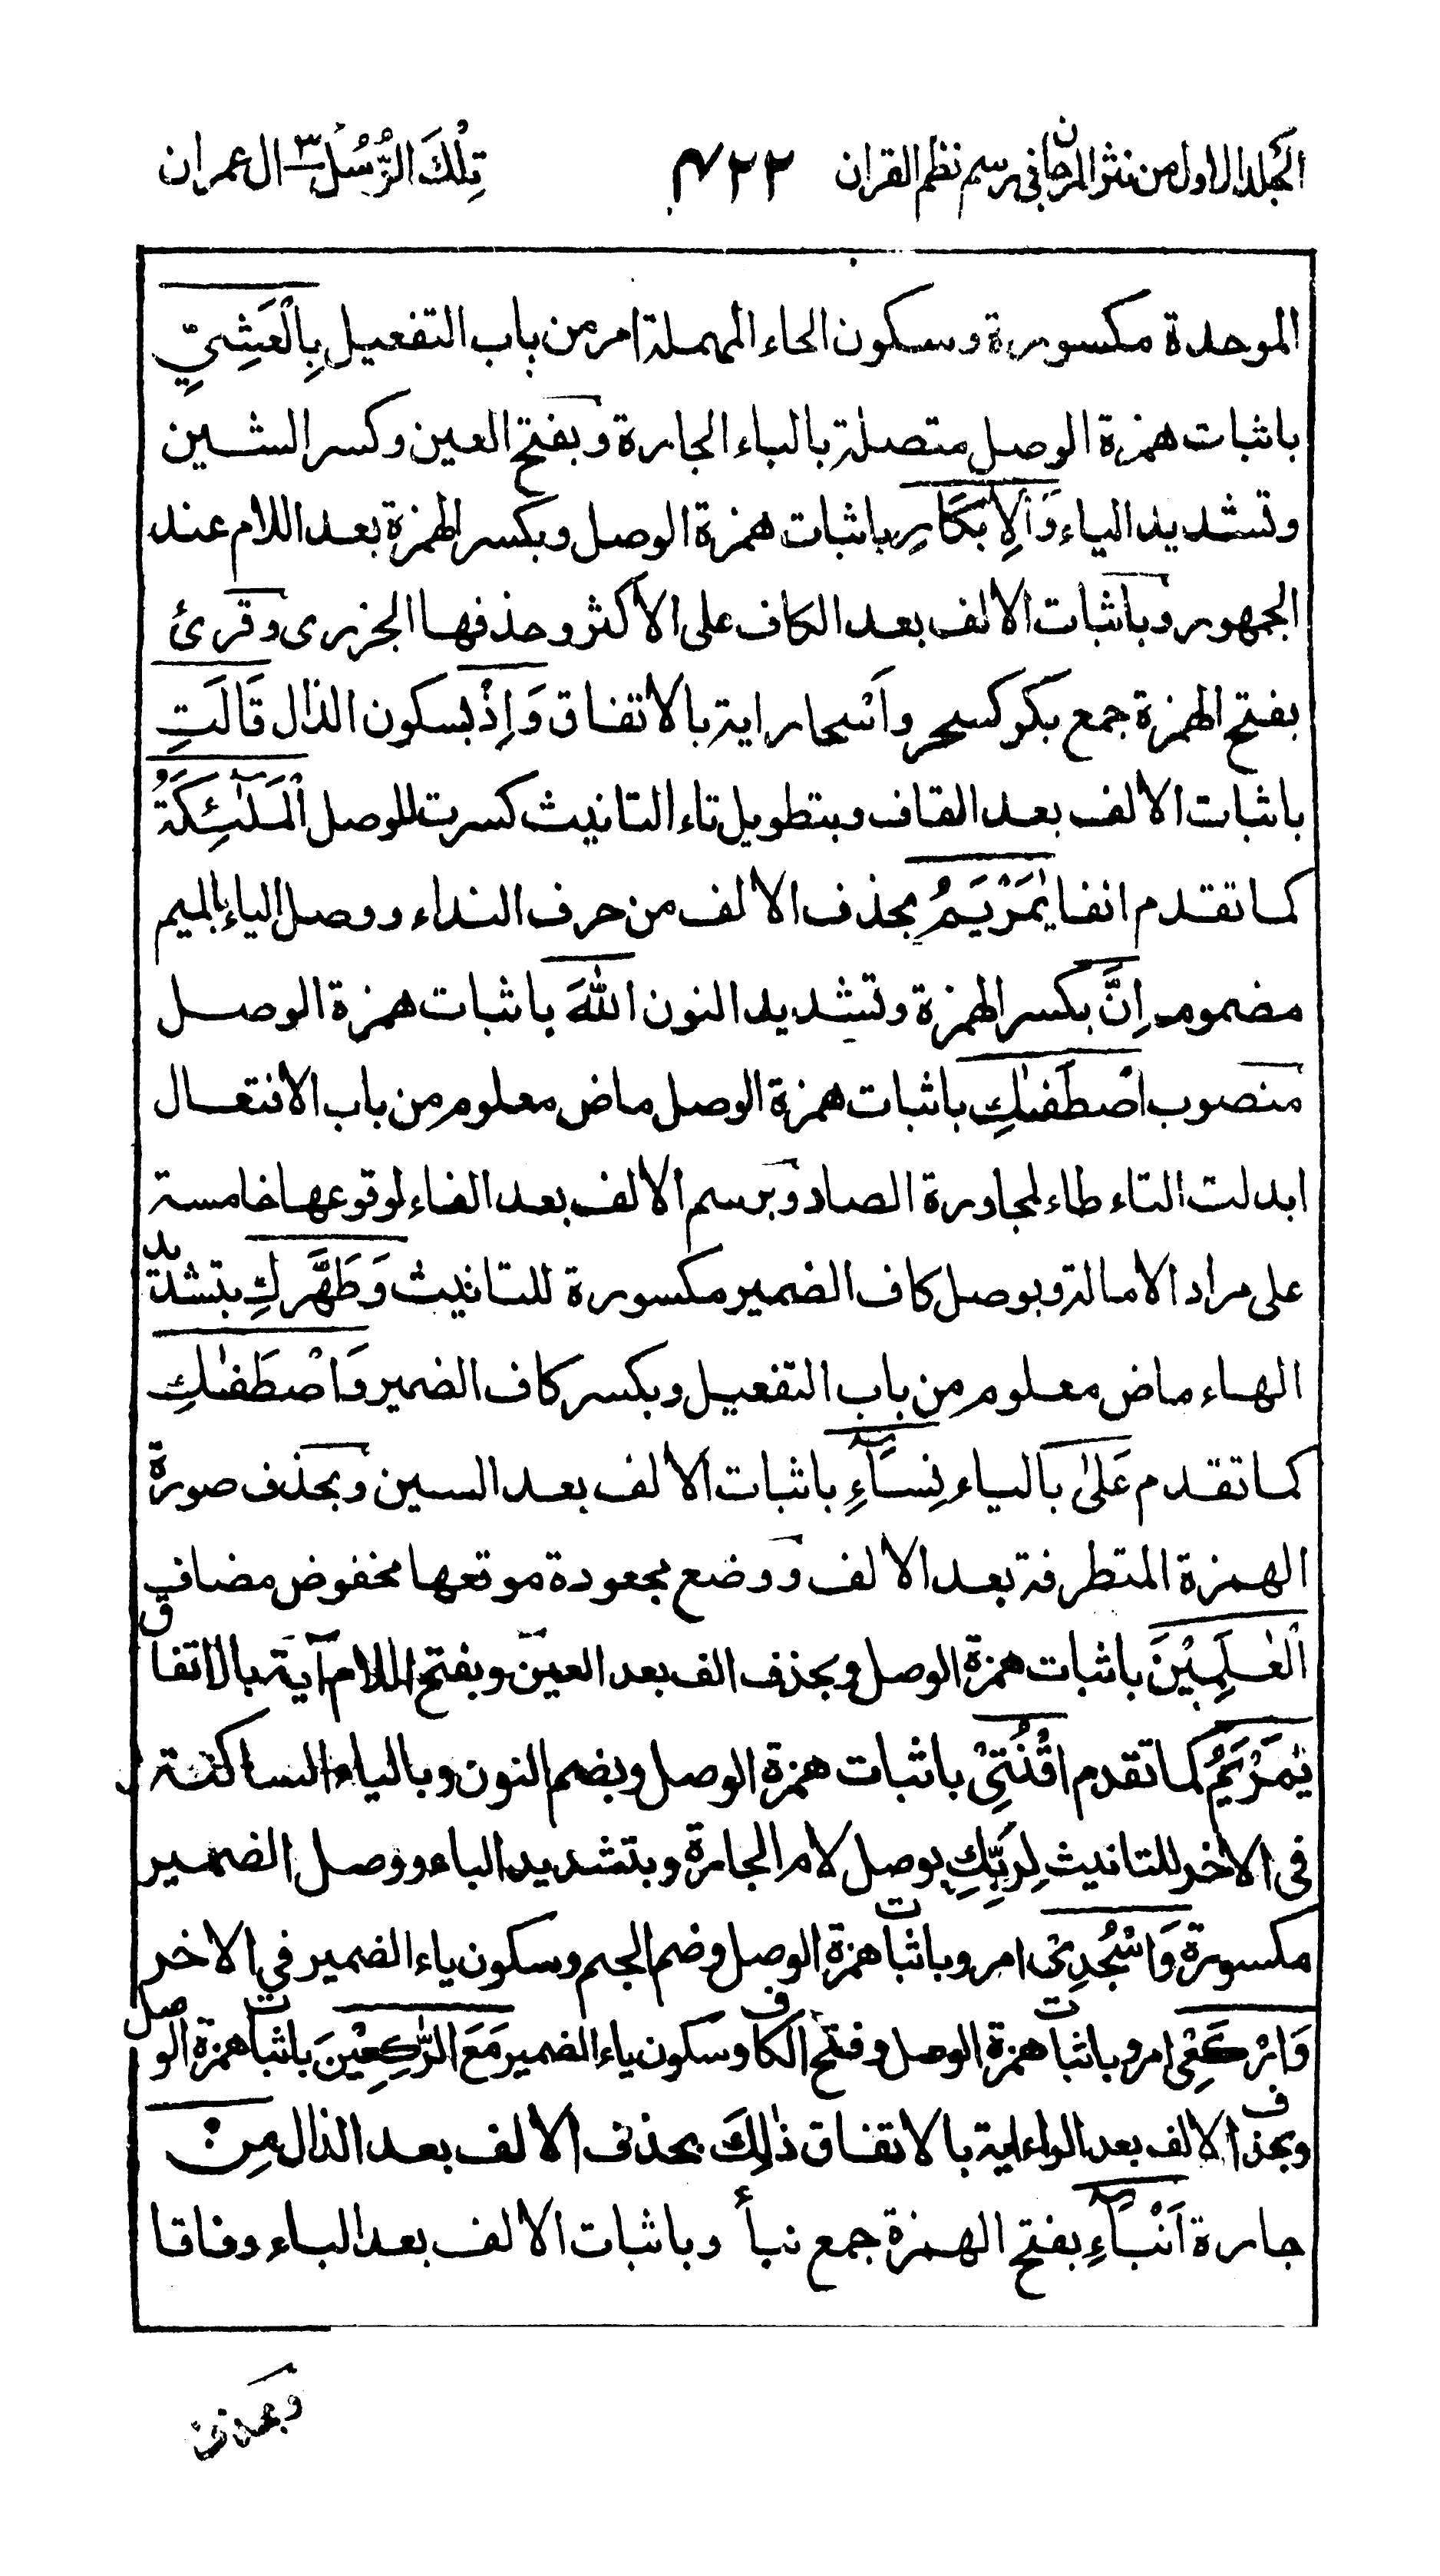 المجلد الاول من نثر المرجان في رسم نظم القران ٤٢٢ تِلْكَ الرُّسُلُ ٣ ال عمران
الموحدة مكسورة وسكون الحاء المهملة امر من باب التفعيل بِالْعَشِيِّ
باثبات همزة الوصل متصلة بالباء الجارة وبفتح العين وكسر الشين
وتشديد الياء وَالْاِبْكَارِ باثبات همزة الوصل وبكسر الهمزة بعد اللام عند
الجمهور وباثبات الالف بعد الكاف على الاكثر وحذفها الجزرى وقرئ
بفتح الهمزة جمع بكر كسحر واَسْحار اية بالاتفاق وَاِذْ بسكون الذال قَالَتِ
باثبات الالف بعد القاف وبتطويل تاء التانيث كسرت للوصل الْمَلٰٓئِكَةُ
كما تقدم انفا يٰمَرْيَمُ بحذف الالف من حرف النداء ووصل الياء بالميم
مضموم اِنَّ بكسر الهمزة وتشديد النون اللّٰهَ باثبات همزة الوصل
منصوب اصْطَفٰىكِ باثبات همزة الوصل ماض معلوم من باب الافتعال
ابدلت التاء طاء لمجاورة الصاد وبرسم الالف بعد الفاء لوقوعها خامسة
على مراد الامالة وبوصل كاف الضمير مكسورة للتانيث وَطَهَّرَكِ بتشديد
الهاء ماض معلوم من باب التفعيل وبكسر كاف الضمير وَاصْطَفٰىكِ
كما تقدم عَلٰى بالياء نِسَآءِ باثبات الالف بعد السين وبحذف صورة
الهمزة المتطرفة بعد الالف ووضع مجعودة موقعها مخفوض مضاف
الْعٰلَمِيْنَ باثبات همزة الوصل وبحذف الف بعد العين وبفتح اللام آية بالاتفاق
يٰمَرْيَمُ كما تقدم اقْنُتِيْ باثبات همزة الوصل وبضم النون وبالياء الساكنة
في الاخر للتانيث لِرَبِّكِ بوصل لام الجارة وبتشديد الباء ووصل الضمير
مكسورة وَاسْجُدِيْ امر وباثبات همزة الوصل وضم الجيم وسكون ياء الضمير في الاخر
وَارْكَعِيْ امر وباثبات همزة الوصل وفتح الكاف وسكون ياء الضمير مَعَ الرّٰكِعِيْنَ باثبات همزة الوصل
وبحذف الالف بعد الراء اية بالاتفاق ذٰلِكَ بحذف الالف بعد الذال مِنْ
جارة اَنْۢبَآءِ بفتح الهمزة جمع نبأ وباثبات الالف بعد الباء وفاقا
وبحذف